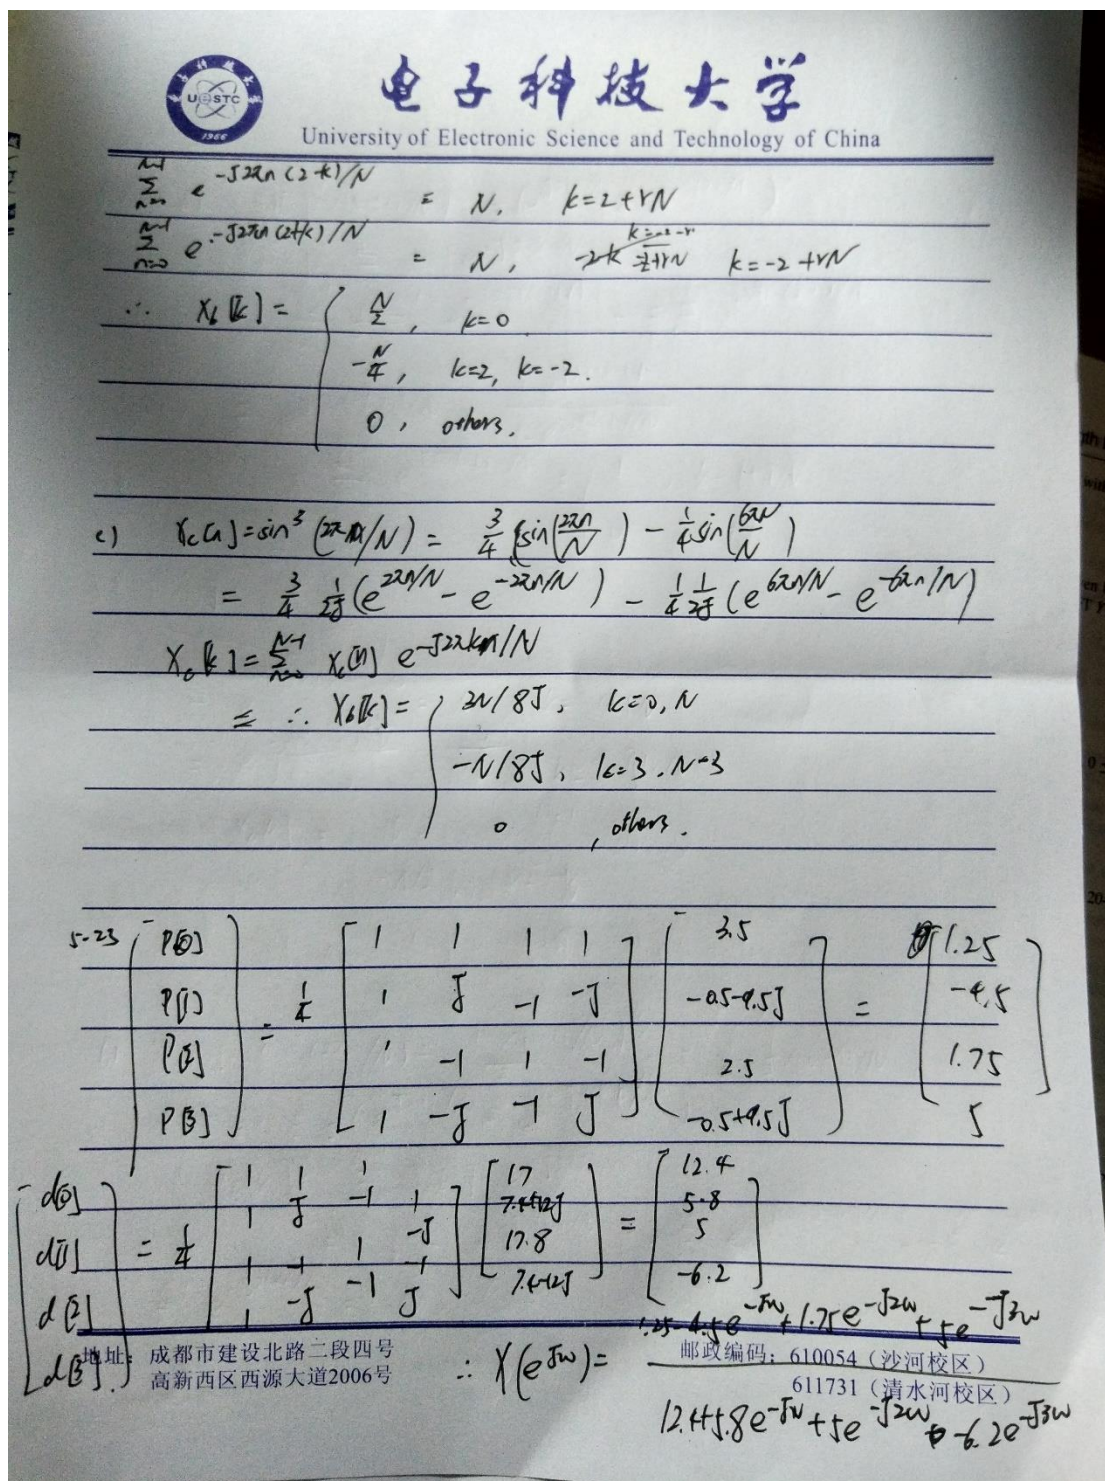 电子科技大学
University of Electronic Science and Technology of China
UESTC
1956
N-1 ∑ n=0 e^{-J2πn(2-k)/N} = N, k=2+rN
N-1 ∑ n=0 e^{-J2πn(2+k)/N} = N, k=-2+rN
∴ X_b[k] = { N/2, k=0
-N/4, k=2, k=-2.
0, others.
c) x_c[n] = sin³(2πn/N) = 3/4 sin(2πn/N) - 1/4 sin(6πn/N)
= 3/4 1/2J (e^{2πn/N} - e^{-2πn/N}) - 1/4 1/2J (e^{6πn/N} - e^{-6πn/N})
X_c[k] = N-1 ∑ n=0 x_c[n] e^{-J2πkn/N}
= ∴ X_b[k] = { 3N/8J, k=0, N
-N/8J, k=3, N-3
0, others.
5-23 [P[0] P[1] P[2] P[3]] = 1/4 [1 1 1 1
1 J -1 -J
1 -1 1 -1
1 -J -1 J] [3.5
-0.5-9.5J
2.5
-0.5+9.5J] = [1.25
-4.5
1.75
5]
[d[0] d[1] d[2] d[3]] = 1/4 [1 1 1 1
1 J -1 -J
1 -1 1 -1
1 -J -1 J] [17
7.4+12J
17.8
7.4-12J] = [12.4
5.8
5
-6.2]
∴ X(e^{Jω}) = 1.25-4.5e^{-Jω}+1.75e^{-J2ω}+5e^{-J3ω}
12.4+5.8e^{-Jω}+5e^{-J2ω}-6.2e^{-J3ω}
地址：成都市建设北路二段四号
高新西区西源大道2006号
邮政编码：610054（沙河校区）
611731（清水河校区）